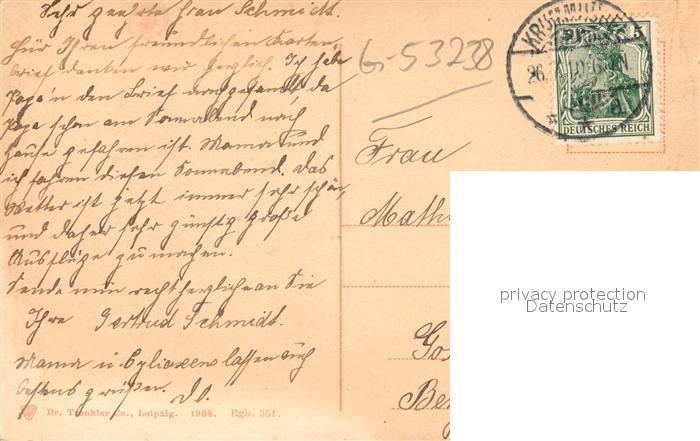 Sehr geehrte Frau Schmidt.
Für Ihren freundlichen Karten-
brief danken wir herzlich. Ich habe
Papa'n den Brief nachgesandt, da
Papa schon am Sonnabend nach
Hause gefahren ist. Mama und
ich fahren diesen Sonnabend. Das
Wetter ist jetzt immer sehr schön,
und daher sehr günstig große
Ausflüge zu machen.
Sende nun recht herzliche an Sie
Ihre Gertrud Schmidt.
Mama u. lassen auch
bestens grüßen. D.O.
Dr. Trenkler Co., Leipzig. 1908. Rgb. 351.
G-53238
KRUMMHÜBEL
26.
5
DEUTSCHES REICH
Frau
Math
Gos
Be
privacy protection
Datenschutz